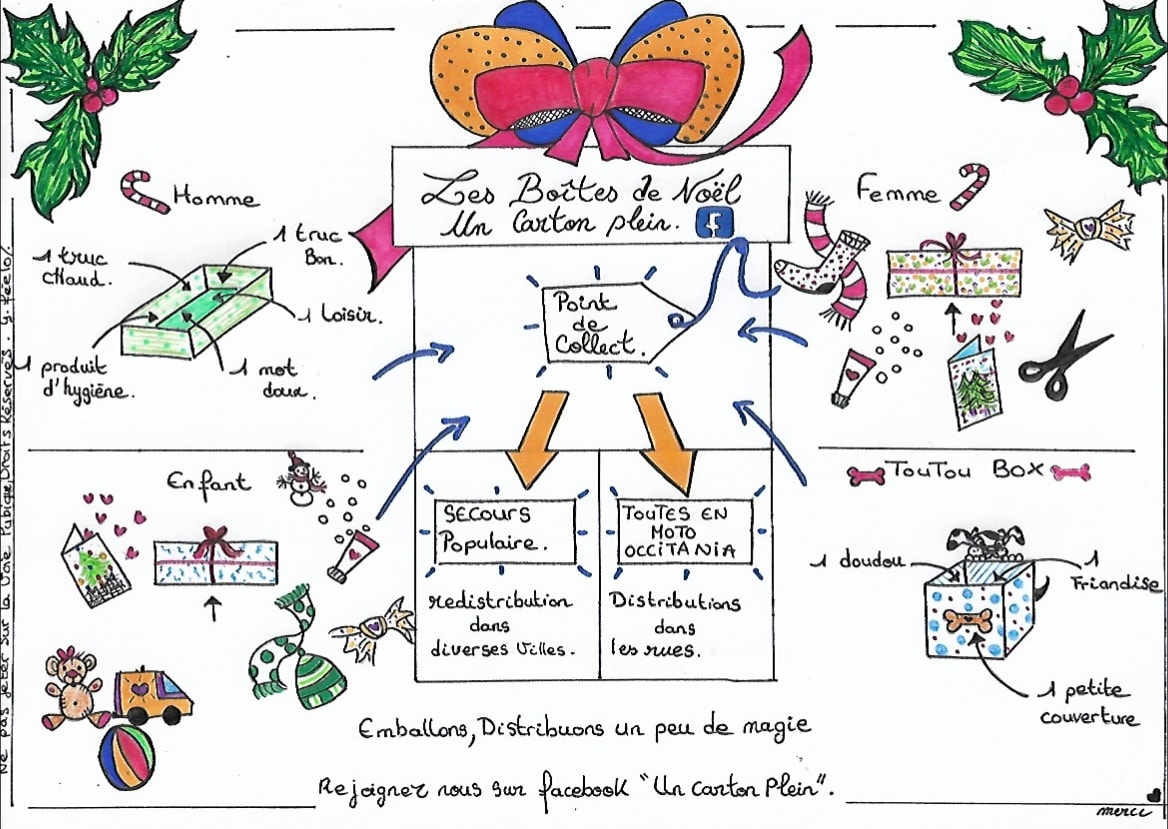 Les Boîtes de Noël
Un Carton plein.
Homme
1 truc
CHaud.
1 truc
Bon.
1 loisir.
1 produit
d'hygiène.
1 mot
doux.
Femme
Point
de
Collect.
Enfant
TouTou Box
1 doudou
1
Friandise
1 petite
couverture
SECOURS
Populaire.
redistribution
dans
diverses Villes.
TOUTES EN
MOTO
OCCITANIA
Distributions
dans
les rues.
Emballons, Distribuons un peu de magie
Rejoigner nous sur facebook "Un Carton Plein".
merci
Ne pas jeter sur la Voie Publique. Droits Réservés.